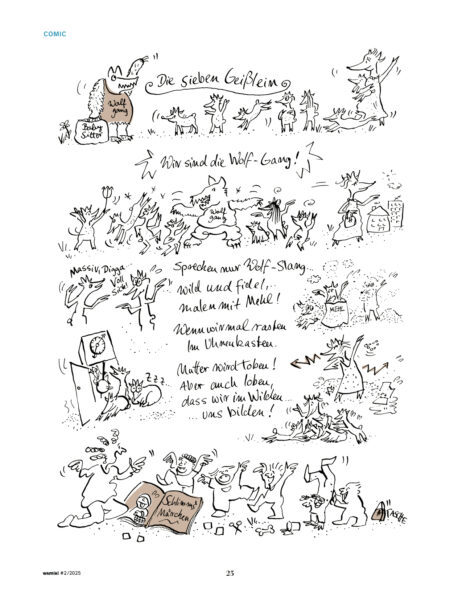 COMIC
Die sieben Geißlein
Wolf
gang
Baby
Sitter
Wir sind die Wolf-Gang!
Wolf
gang
Massiv, Digga
Voll
Sprechen nur Wolf-Slang.
Wild und fidel,
malen mit Mehl!
MEHL
Wenn wir mal rasten
Im Uhrenkasten.
zzz..
Mutter wird toben!
Aber auch loben,
dass wir im Wilden...
... uns bilden!
Schlimme
Märchen
TASCHE
wamiki #2/2025
23